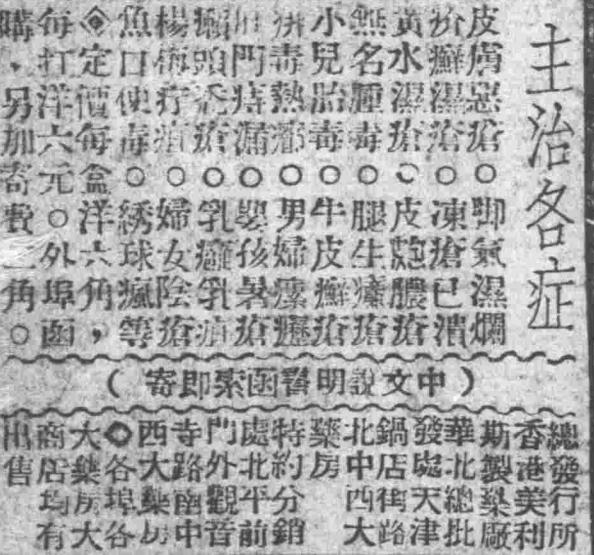 主治各症
皮膚惡瘡○脚氣濕爛
疥癬濕瘡○凍瘡已潰
黃水濕瘡○皮皰膿瘡
無名腫毒○腿生癰瘡
小兒胎毒○牛皮癬瘡
毒熱癤○男婦瘰癧
肛門痔漏○嬰孩暑瘡
癩頭禿瘡○乳癰乳瘡
楊梅疔瘡○婦女陰瘡
魚口便毒○綉球瘋等
◈定價每盒洋六角，
每打洋六元○外埠函
購，另加寄費二角○
（中文說明書函索即寄）
總發行所
香港美利
斯製藥廠
華北總批
發處天津
鍋店街路
北中西大
藥房
特約分銷
處北平前
門外觀音
寺路函中
西大藥房
◎各埠各
大藥房大
商店均有
出售